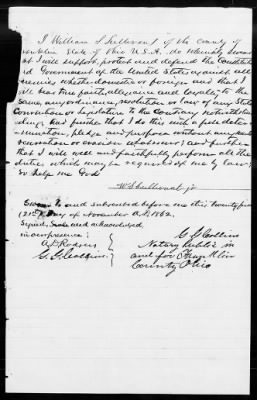 I William S Sullivant jr of the County of
Franklin State of Ohio U.S.A. do solemnly swear
that I will support, protect and defend the Constitution
and Government of the United States against all
enemies whether domestic or foreign and that I
will bear true faith, allegiance and loyalty to the
same, any ordinance, resolution or law of any State
Convention or Legislature to the Contrary notwithstan-
ding; And further that I do this with a full deter-
mination, pledge and purpose without any mental
reservation or evasion whatsoever; and further
that I will well and faithfully perform all the
duties which may be required of me by law;
So help me God
W S Sullivant jr
Sworn to and subscribed before me this twenty first
(21st) day of November A.D. 1862.
Signed, and acknowledged
in our presence:
A. Rodgers
G. G. Collins
G. G. Collins
Notary Public in
and for Franklin
County Ohio